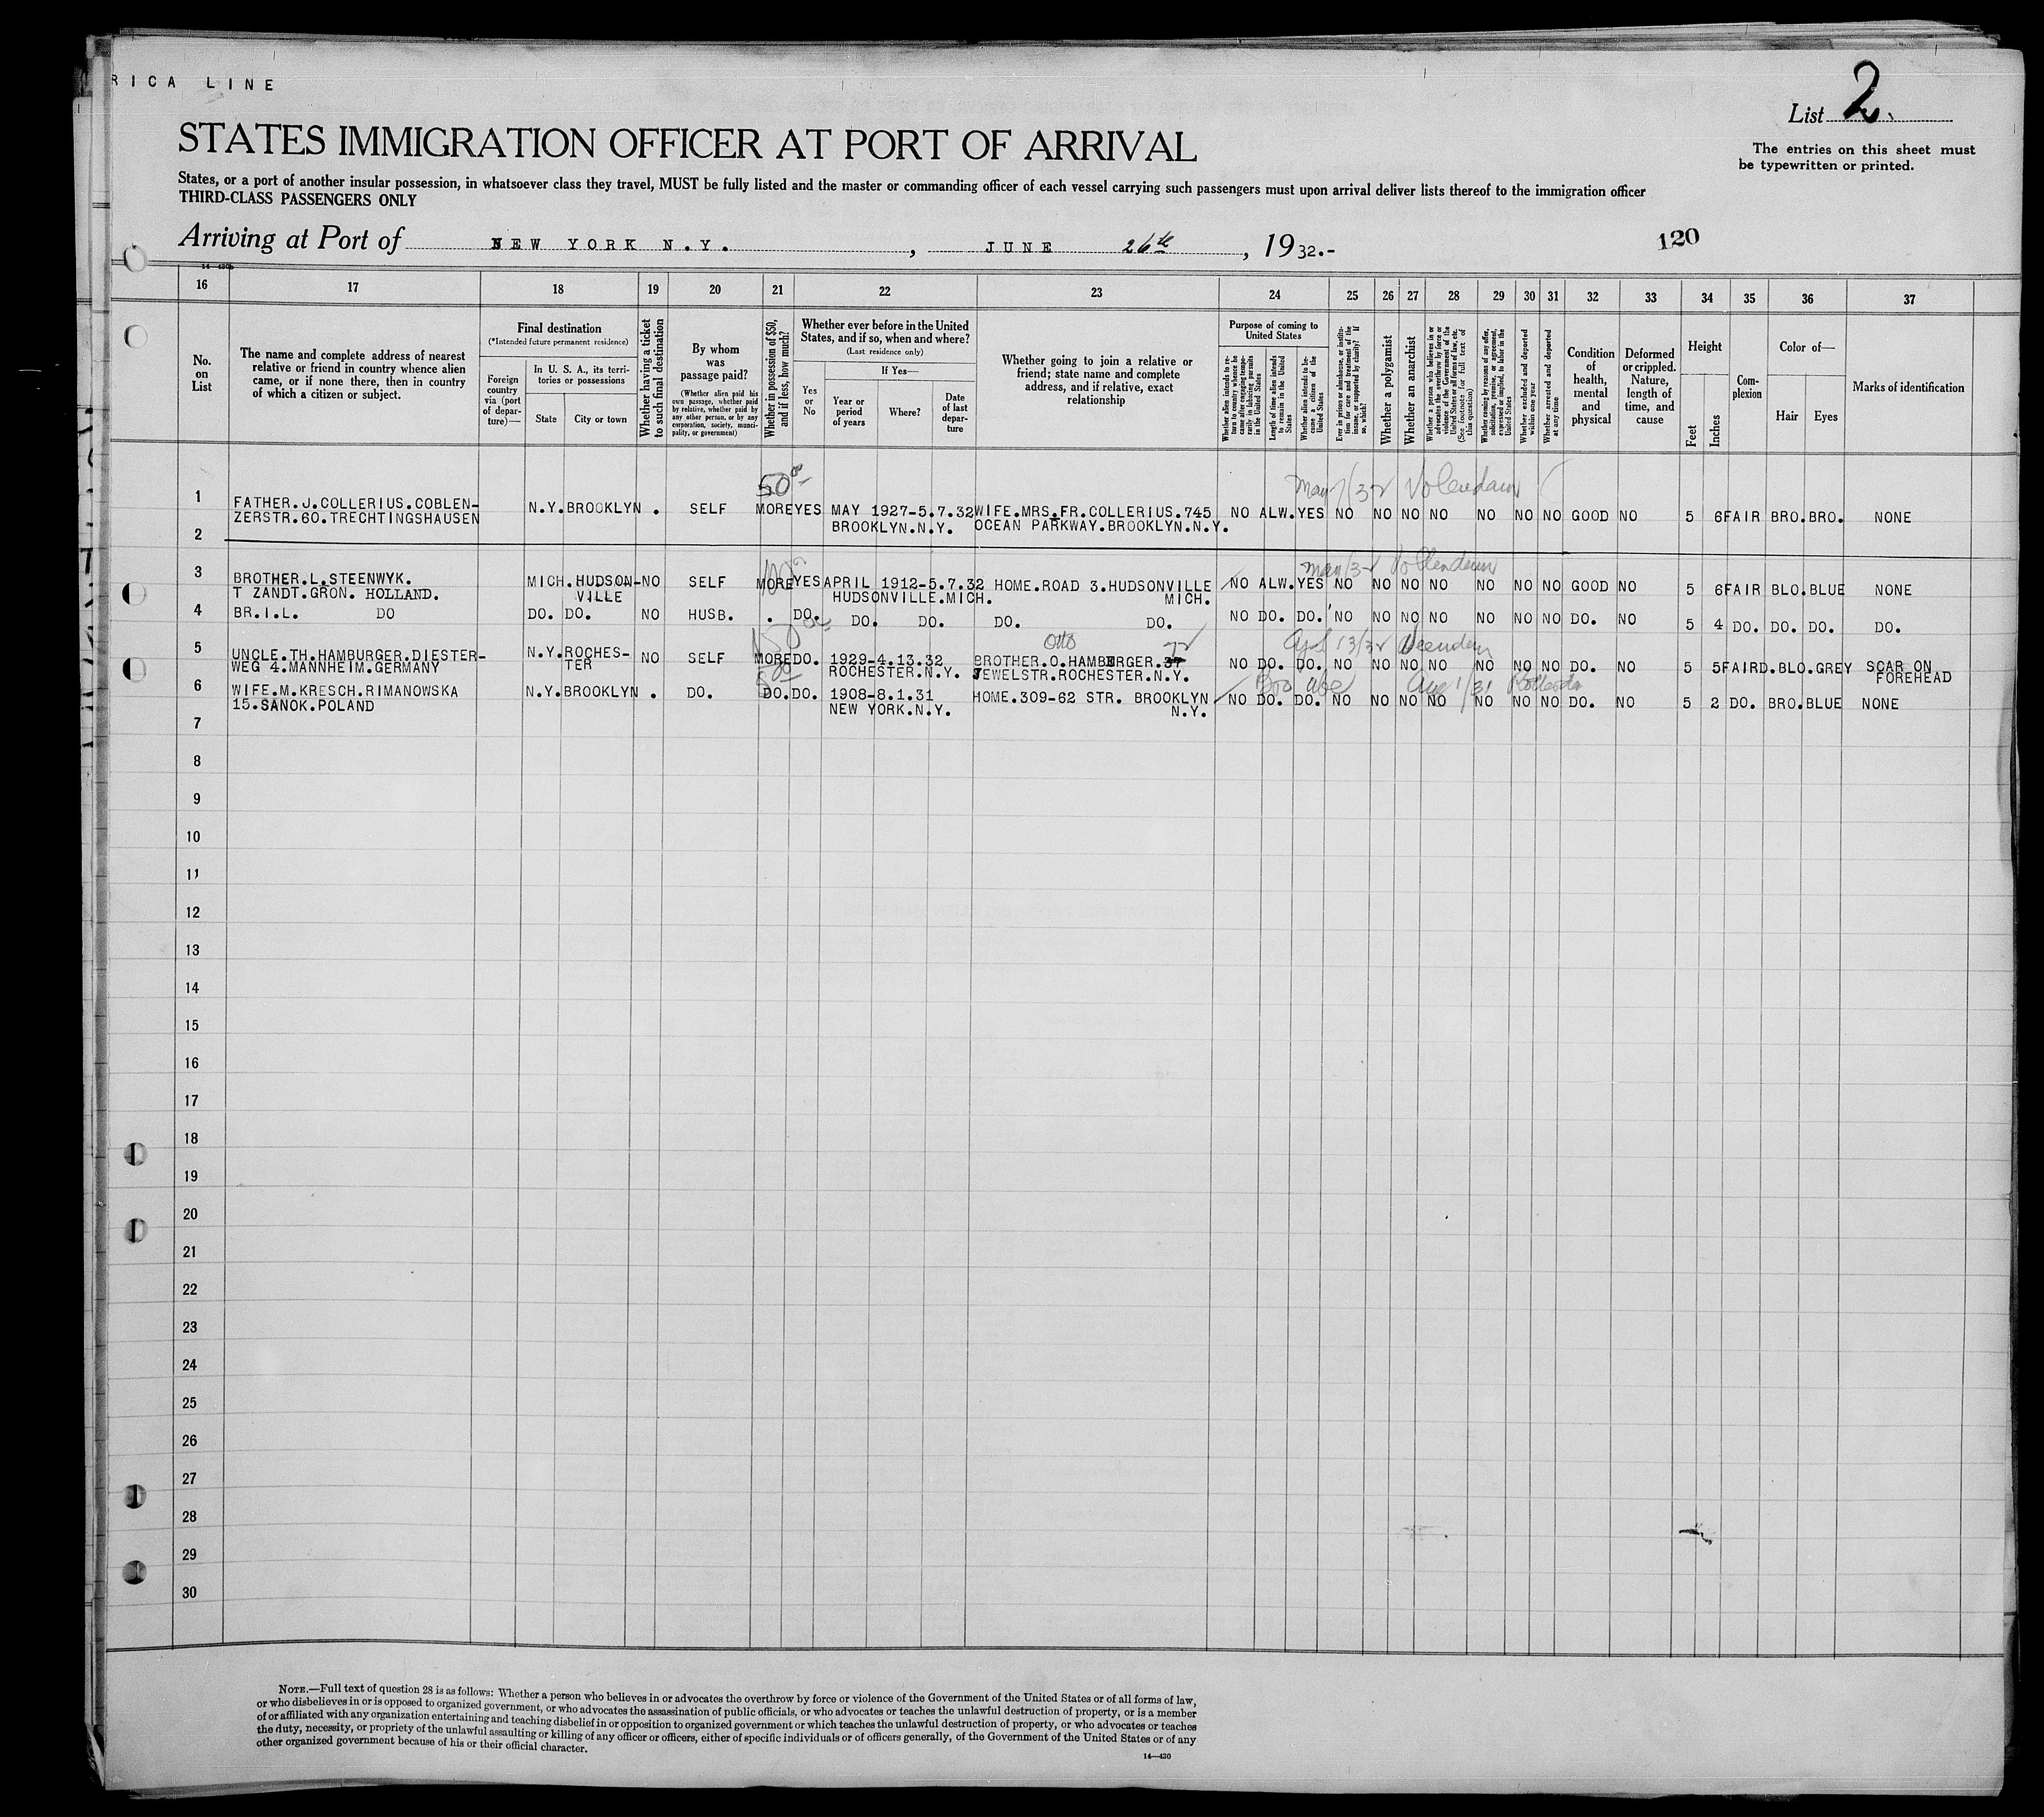 RICA LINE
List 2.
STATES IMMIGRATION OFFICER AT PORT OF ARRIVAL
The entries on this sheet must
be typewritten or printed.
States, or a port of another insular possession, in whatsoever class they travel, MUST be fully listed and the master or commanding officer of each vessel carrying such passengers must upon arrival deliver lists thereof to the immigration officer
THIRD-CLASS PASSENGERS ONLY
Arriving at Port of NEW YORK N.Y. , JUNE 26th , 1932.-
120
16 17 18 19 20 21 22 23 24 25 26 27 28 29 30 31 32 33 34 35 36 37
No. on List
The name and complete address of nearest
relative or friend in country whence alien
came, or if none there, then in country
of which a citizen or subject.
Final destination
(*Intended future permanent residence)
Foreign country via (port of departure)—
In U. S. A., its territories or possessions
State
City or town
Whether having a ticket to such final destination
By whom was passage paid?
(Whether alien paid his own passage, whether paid by relative, whether paid by any other person, or by any corporation, society, municipality, or government)
Whether in possession of $50, and if less, how much?
Whether ever before in the United
States, and if so, when and where?
(Last residence only)
Yes or No
If Yes—
Year or period of years
Where?
Date of last departure
Whether going to join a relative or
friend; state name and complete
address, and if relative, exact
relationship
Purpose of coming to United States
Whether alien intends to return to country whence he came after engaging temporarily in laboring pursuits in the United States
Length of time alien intends to remain in the United States
Whether alien intends to become a citizen of the United States
Ever in prison or almshouse, or institution for care and treatment of the insane, or supported by charity? If so, which?
Whether a polygamist
Whether an anarchist
Whether a person who believes in or advocates the overthrow by force or violence of the Government of the United States or all forms of law, etc. (See footnote for full text of this question)
Whether coming by reasons of any offer, solicitation, promise, or agreement, expressed or implied, to labor in the United States
Whether excluded and deported within one year
Whether arrested and deported at any time
Condition of health, mental and physical
Deformed or crippled. Nature, length of time, and cause
Height
Feet
Inches
Complexion
Color of—
Hair
Eyes
Marks of identification
50 00
May 7/32 Volendam
1 FATHER.J.COLLERIUS.COBLEN- N.Y.BROOKLYN . SELF MORE YES MAY 1927-5.7.32 WIFE.MRS.FR.COLLERIUS.745 NO ALW. YES NO NO NO NO NO NO NO GOOD NO 5 6 FAIR BRO. BRO. NONE
ZERSTR.60.TRECHTINGSHAUSEN BROOKLYN.N.Y. OCEAN PARKWAY.BROOKLYN.N.Y.
2
May 7/32 Volendam
3 BROTHER.L.STEENWYK. MICH.HUDSON- NO SELF MORE YES APRIL 1912-5.7.32 HOME.ROAD 3.HUDSONVILLE NO ALW. YES NO NO NO NO NO NO NO GOOD NO 5 6 FAIR BLO. BLUE NONE
T ZANDT.GRON. HOLLAND. VILLE HUDSONVILLE.MICH. MICH.
4 BR.I.L. DO DO. DO. NO HUSB. . DO. DO. DO. DO. DO. NO DO. DO. NO NO NO NO NO NO NO DO. NO 5 4 DO. DO. DO. DO.
150 Otto 72
5 UNCLE.TH.HAMBURGER.DIESTER- N.Y.ROCHES- NO SELF MORE DO. 1929-4.13.32 BROTHER.O.HAMBURGER.37 NO DO. DO. NO NO NO NO NO NO NO DO. NO 5 5 FAIR D.BLO. GREY SCAR ON
WEG 4.MANNHEIM.GERMANY TER ROCHESTER.N.Y. JEWELSTR.ROCHESTER.N.Y. FOREHEAD
Aug 1/31
6 WIFE.M.KRESCH.RIMANOWSKA N.Y.BROOKLYN . DO. DO. DO. 1908-8.1.31 HOME.309-62 STR. BROOKLYN NO DO. DO. NO NO NO NO NO NO NO DO. NO 5 2 DO. BRO. BLUE NONE
15.SANOK.POLAND NEW YORK.N.Y. N.Y.
7
8
9
10
11
12
13
14
15
16
17
18
19
20
21
22
23
24
25
26
27
28
29
30
NOTE.—Full text of question 28 is as follows: Whether a person who believes in or advocates the overthrow by force or violence of the Government of the United States or of all forms of law,
or who disbelieves in or is opposed to organized government, or who advocates the assassination of public officials, or who advocates or teaches the unlawful destruction of property, or is a member
of or affiliated with any organization entertaining and teaching disbelief in or opposition to organized government or which teaches the unlawful destruction of property, or who advocates or teaches
the duty, necessity, or propriety of the unlawful assaulting or killing of any officer or officers, either of specific individuals or of officers generally, of the Government of the United States or of any
other organized government because of his or their official character.
14—430